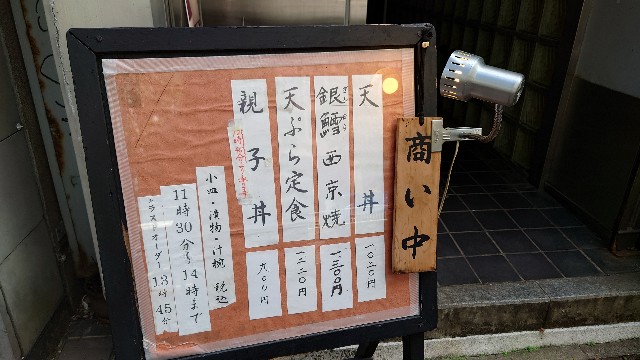 天丼 一〇二〇円
銀鱈西京焼 一三〇〇円
ぎんだら
天ぷら定食 一二二〇円
親子丼 九〇〇円
小皿・漬物・汁椀 税込
11時30分〜14時まで
ラストオーダー 13時45分
商い中